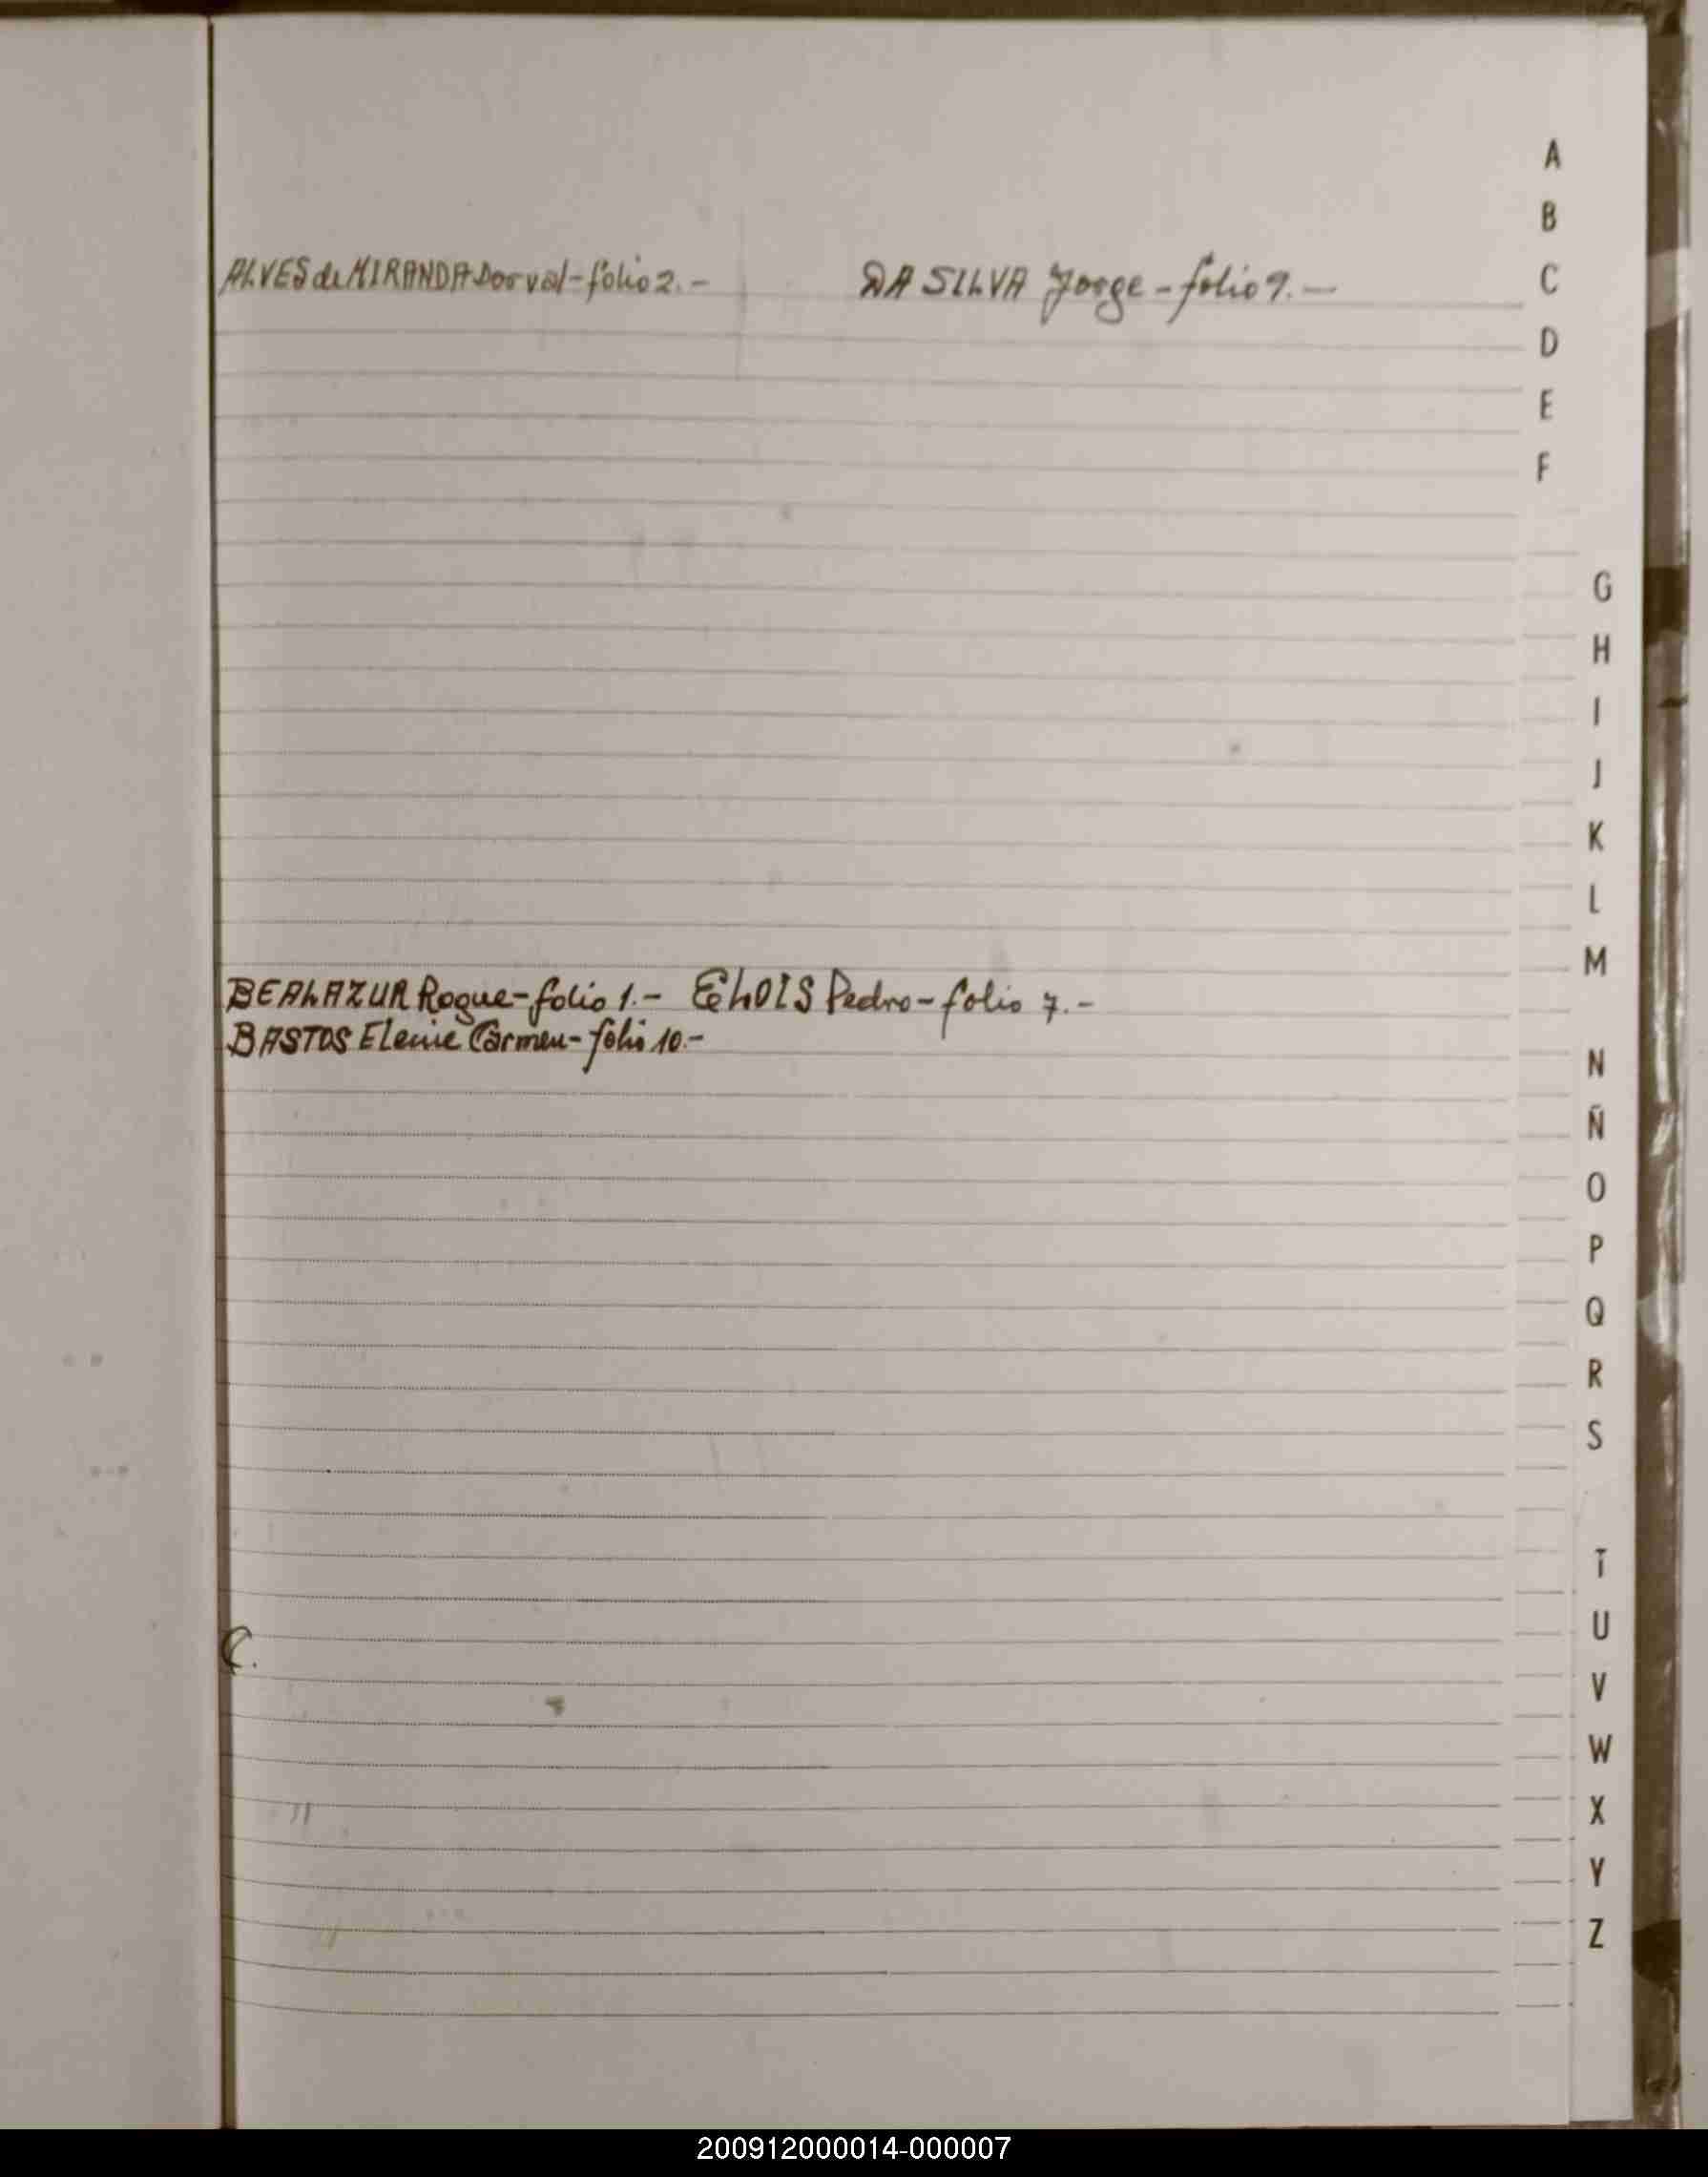 ALVES de MIRANDA Dorval - folio 2.-
DA SILVA Jorge - folio 9.-
BEALAZUR Roque - folio 1.- ELOIS Pedro - folio 7.-
BASTOS Elenie Carmen - folio 10.-
C.
A
B
C
D
E
F
G
H
I
J
K
L
M
N
Ñ
O
P
Q
R
S
T
U
V
W
X
Y
Z
200912000014-000007